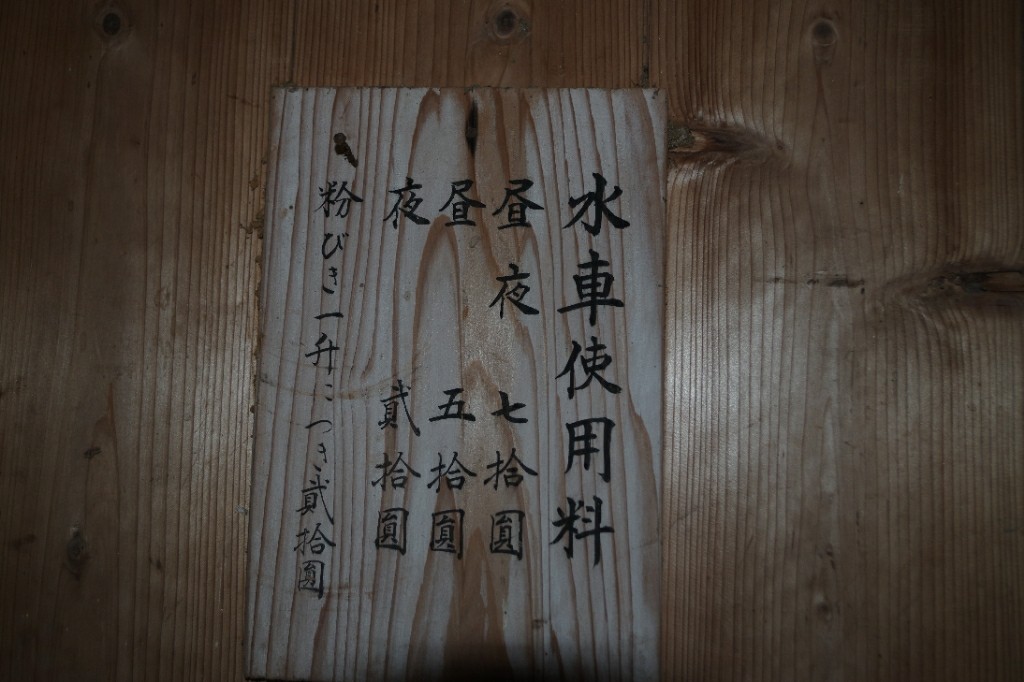 水車使用料
昼夜 七拾圓
昼 五拾圓
夜 貳拾圓
粉びき一升ニつき貳拾圓